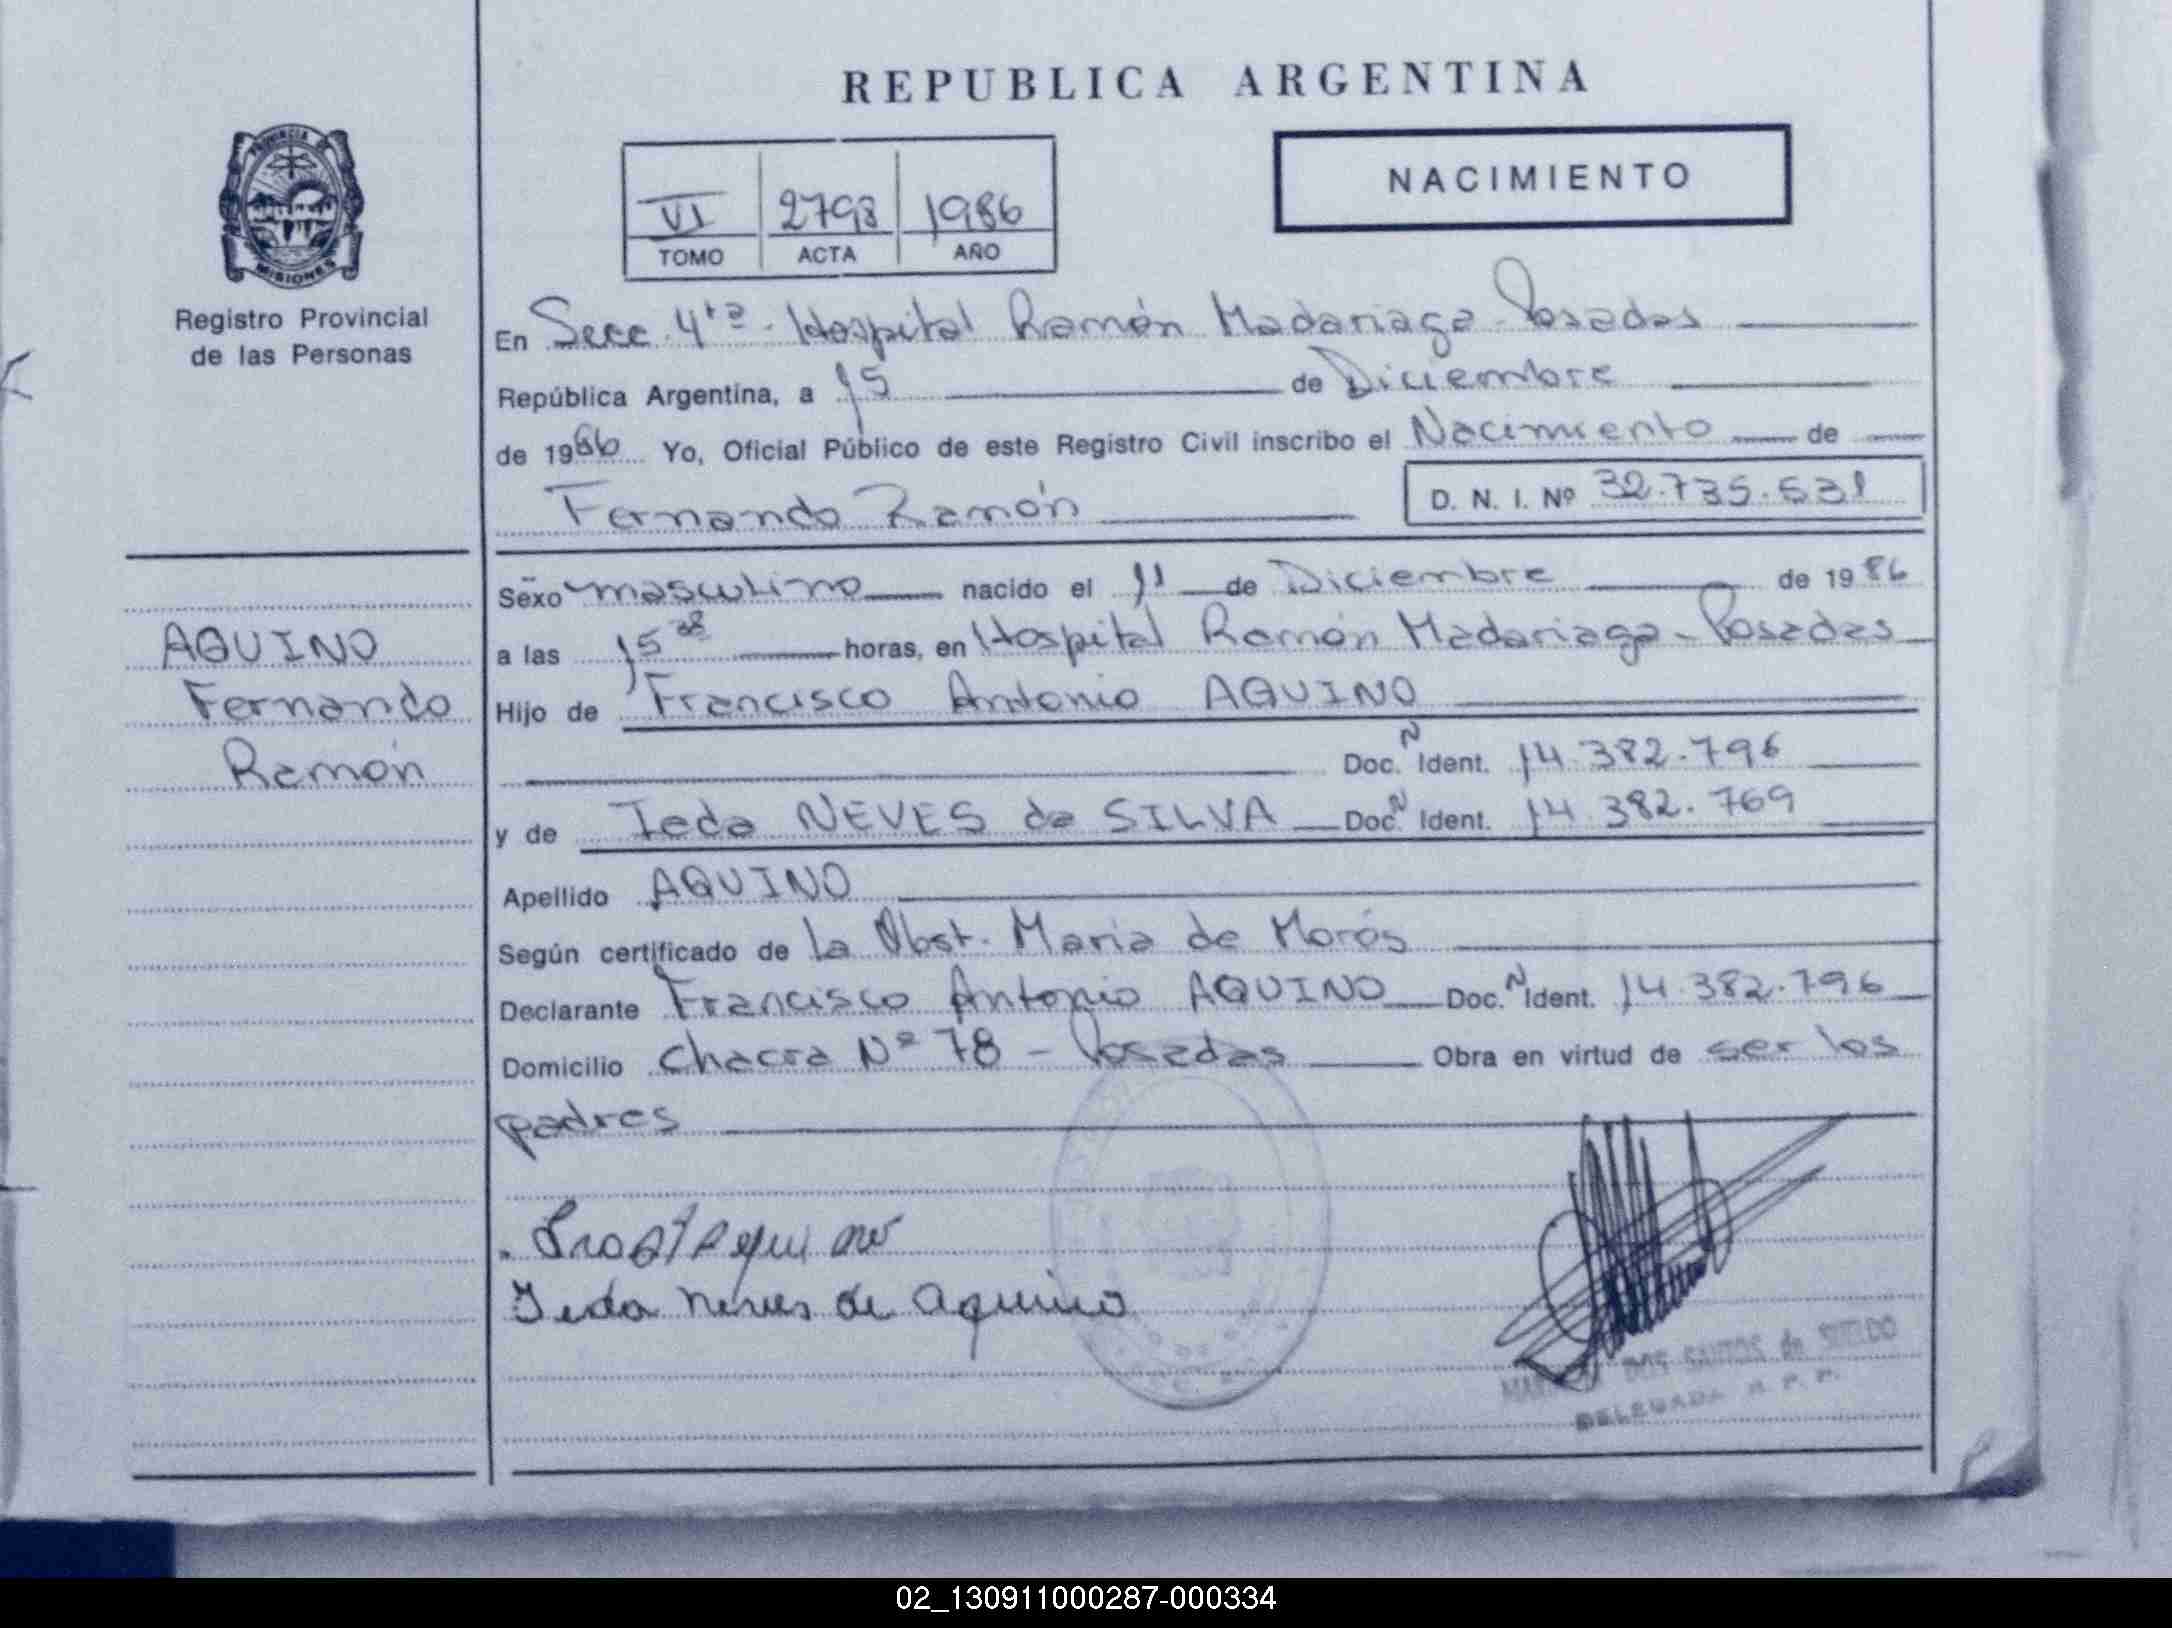 REPUBLICA ARGENTINA
PROVINCIA DE
MISIONES
Registro Provincial
de las Personas
VI 2798 1986
TOMO ACTA AÑO
NACIMIENTO
En Secc. 4ta - Hospital Ramón Madariaga - Posadas
República Argentina, a 15 de Diciembre
de 1986 Yo, Oficial Público de este Registro Civil inscribo el Nacimiento de
Fernando Ramón
D. N. I. Nº 32.735.531
AQUINO
Fernando
Ramón
Sexo masculino nacido el 11 de Diciembre de 1986
a las 15 38 horas, en Hospital Ramón Madariaga - Posadas
Hijo de Francisco Antonio AQUINO
Doc. N Ident. 14.382.796
y de Ieda NEVES da SILVA Doc. N Ident. 14.382.769
Apellido AQUINO
Según certificado de la Obst. Maria de Morós
Declarante Francisco Antonio AQUINO Doc. N Ident. 14.382.796
Domicilio Chacra Nº 78 - Posadas Obra en virtud de ser los
padres
Ieda Neves de Aquino
DOS SANTOS de SUELDO
DELEGADA R. P. P.
02_130911000287-000334